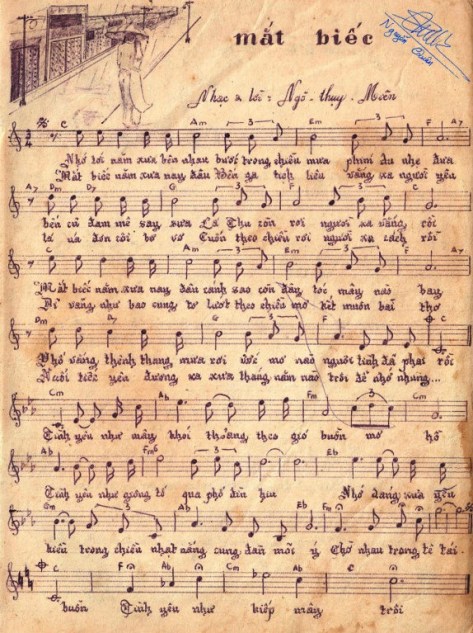 mắt biếc
Nguyễn
Nhạc & lời : Ngô - thụy - Miên
C Am Em F G
Nhớ tới năm xưa bên nhau bước trong chiều mưa phím du nhẹ đưa
Mắt biếc năm xưa nay đâu bến ga tịch liêu vắng xa người yêu
A7 Dm Dm7 G F A7
bến cũ đam mê say sưa Lá Thu còn rơi người xa vắng rồi
lá úa đơn côi bơ vơ Cuốn theo chiều rơi người xa cách rồi
C Am Em F G
Mắt biếc năm xưa nay đâu cánh sao còn đây tóc mây nào bay
Dĩ vãng như bao cung tơ lướt theo chiều mơ kết muôn bài thơ
A7 Dm Dm7 G F C
Phố vắng thênh thang mưa rơi ước mơ nào người tình đã phai rồi
Nuối tiếc yêu đương xa xưa tháng năm nào trôi để nhớ nhung...
Cm Gm Eb Bb F Cm
Tình yêu như mây khói thoảng theo gió buồn mơ hồ
Ab Fm6 Bb Ab
Tình yêu như giòng tố qua phố đìu hiu Nhớ dáng xưa yêu
Gm Cm Ab Eb Fm
kiều trong chiều nhạt nắng cung đàn môi ý Chờ nhau trong tê tái
C F Ab Cm Bb C
buồn Tình yêu như kiếp mây trôi